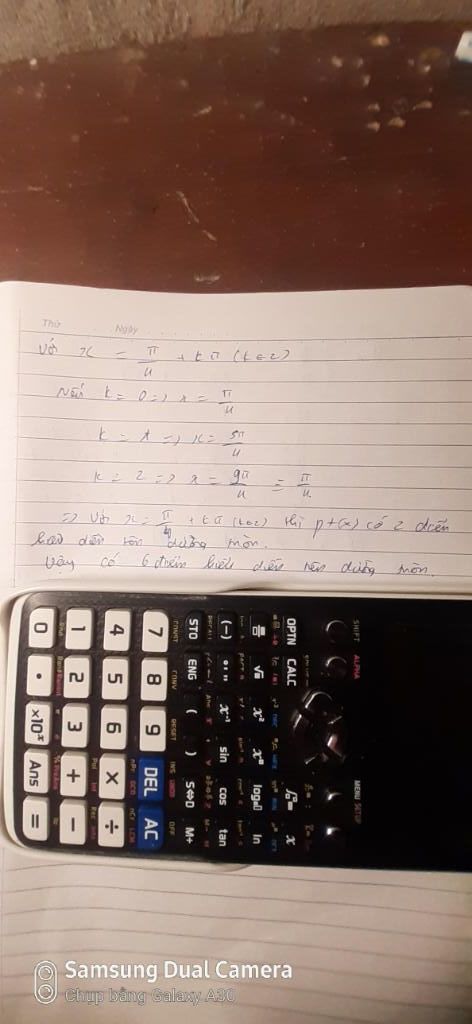 Thứ
Ngày
Với x = π/4 + kπ (k∈Z)
Nếu k = 0 => x = π/4
k = 1 => x = 5π/4
k = 2 => x = 9π/4 = π/4
=> Với x = π/4 + kπ (k∈Z) thì pt(x) có 2 điểm
biểu diễn trên đường tròn.
Vậy có 6 điểm biểu diễn trên đường tròn.
SHIFT ALPHA MENU SETUP
OPTN CALC x
√ x² log ln
(-) x⁻¹ sin cos tan
STO ENG ( ) S⇔D M+
CONST CONV RESET INS OFF
7 8 9 DEL AC
4 5 6 × ÷
1 2 3 + −
0 • ×10ˣ Ans =
Samsung Dual Camera
Chụp bằng Galaxy A30